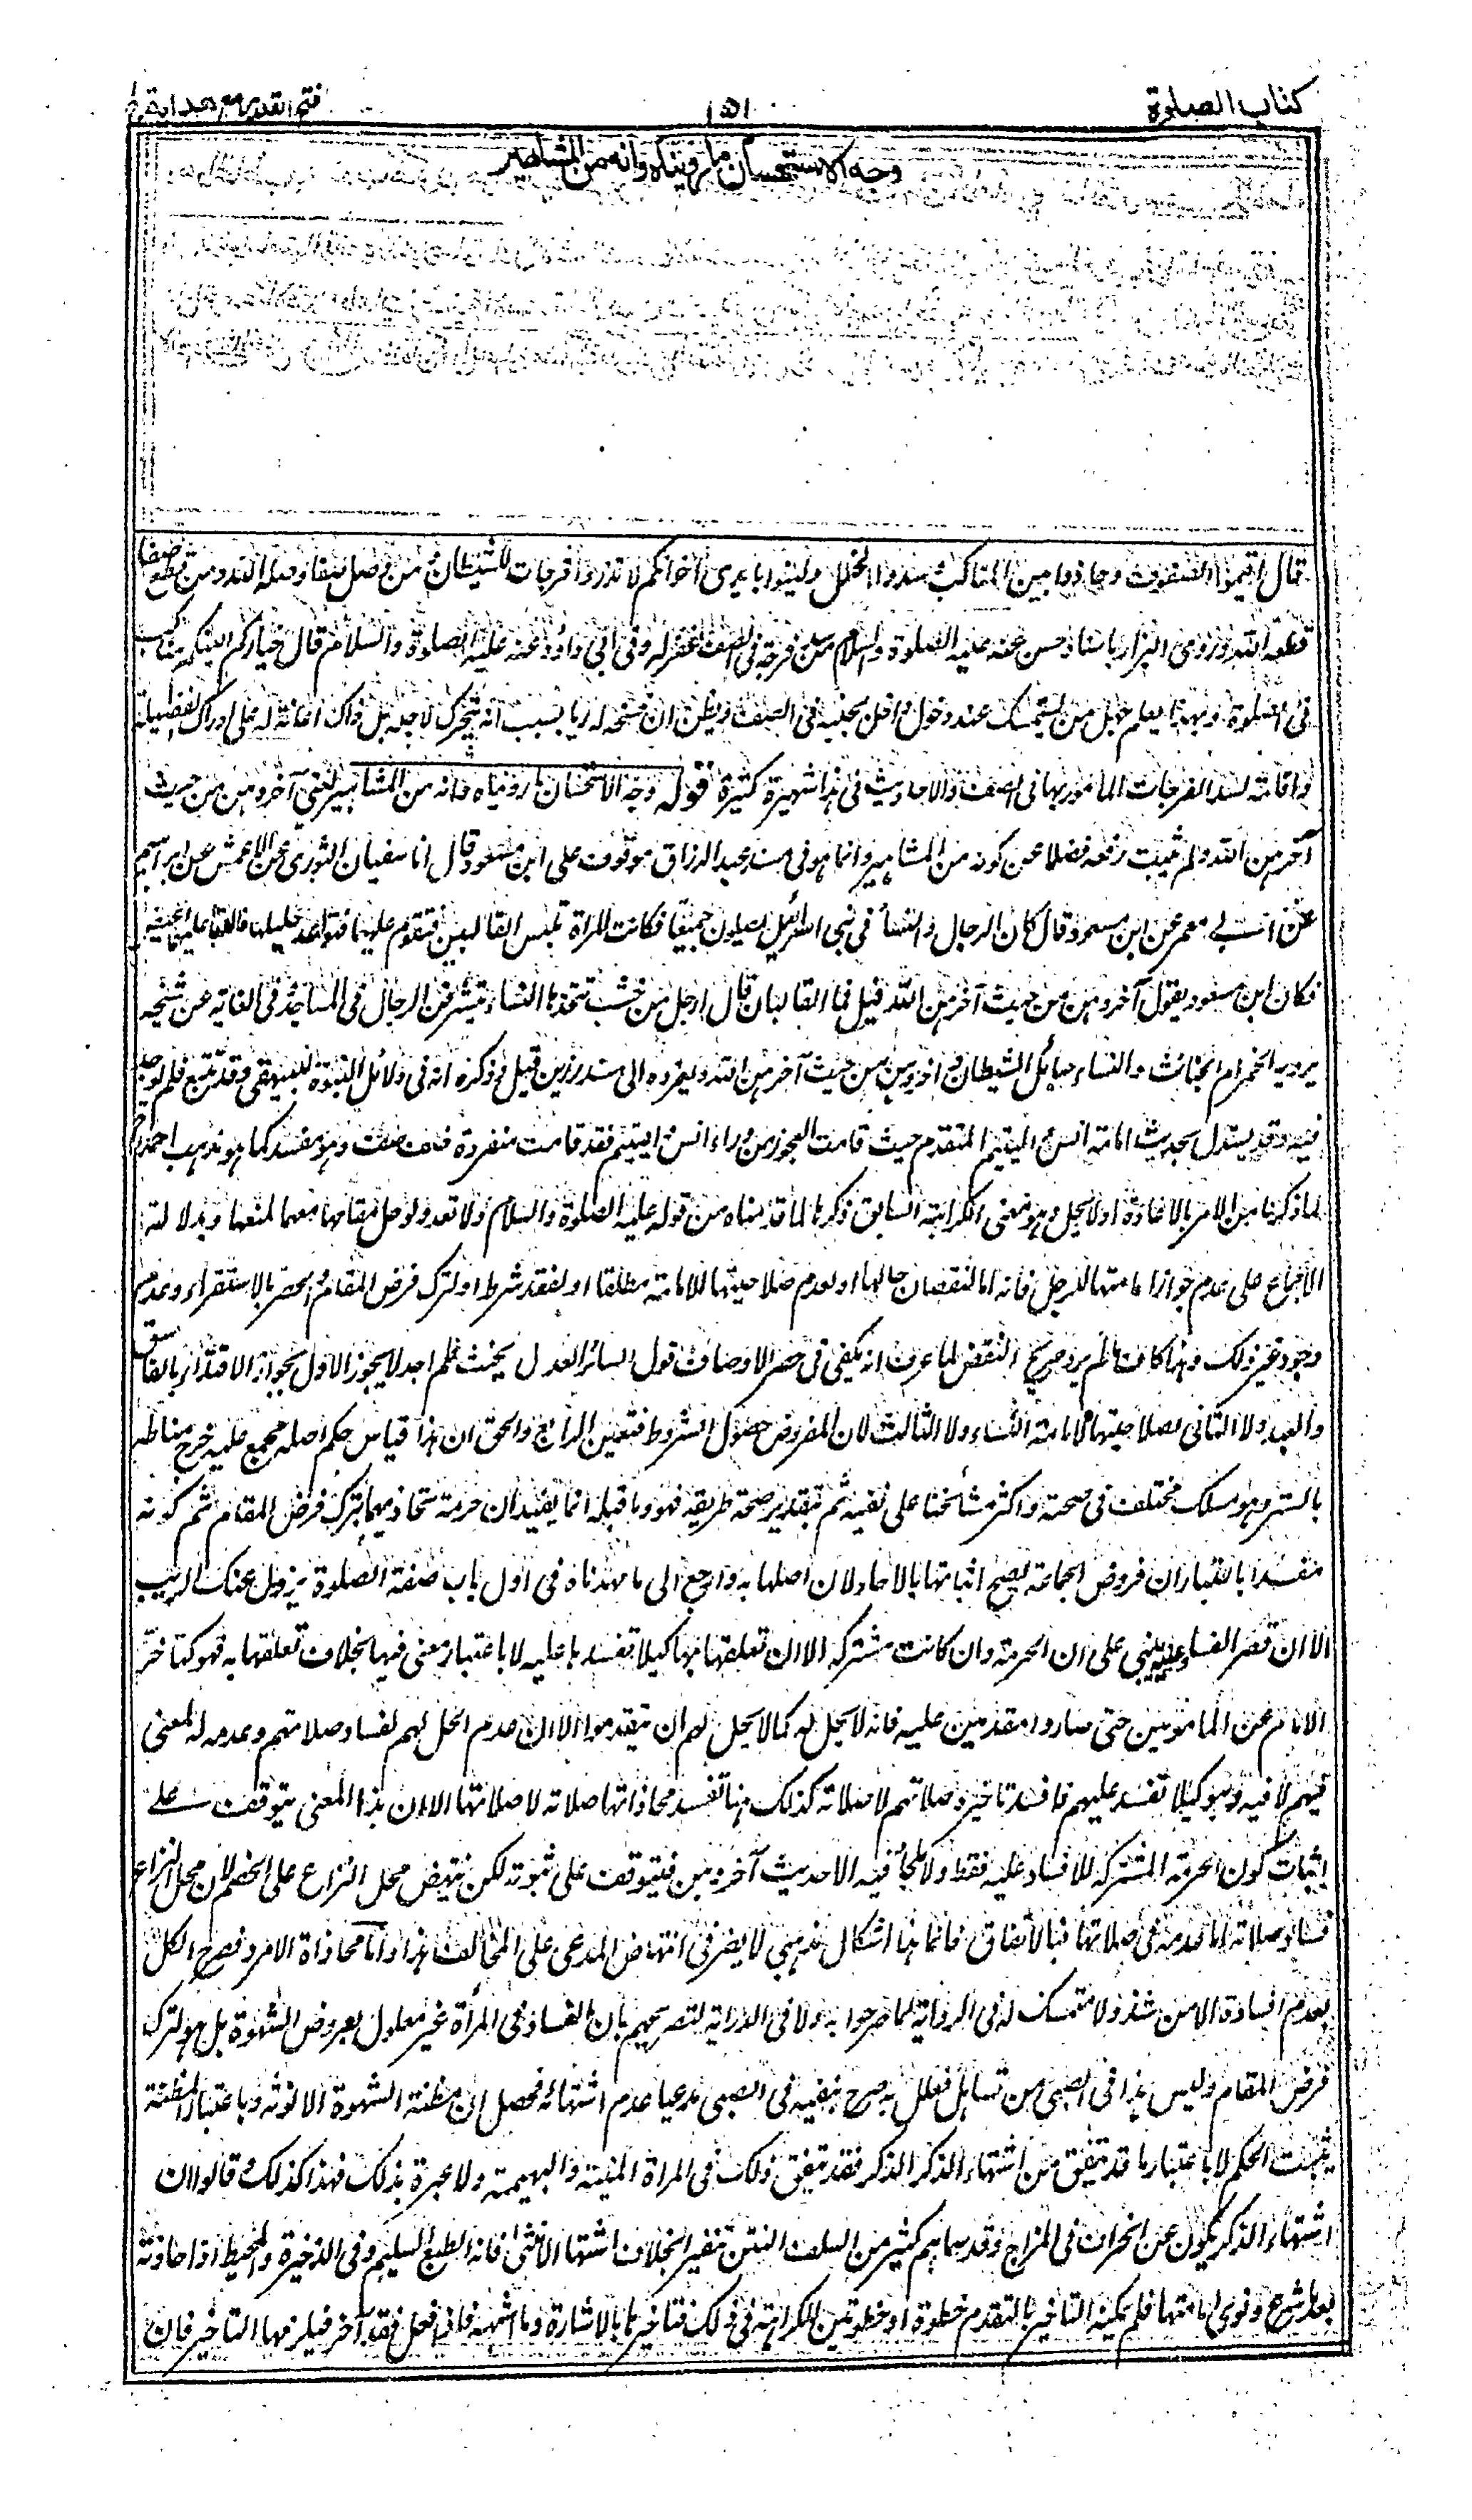 كتاب الصلوة
١٥١
فتح القدير مع هداية ج ١
وجه الاستحسان ما رويناه وانه من المشاهير
قال اقيموا الصفوف وحاذوا بين المناكب وسدوا الخلل ولينوا بايدى اخوانكم لا تذروا فرجات للشيطان من وصل صفا وصله الله ومن قطع صفا
قطعه الله وروى البزار باسناد حسن عنه عليه الصلوة والسلام من سد فرجة فى الصف غفر له وفى ابى داؤد عنه عليه الصلوة والسلام قال خياركم الينكم مناكب
فى الصلوة وبهذا يعلم جهل من يستمسك عند دخول داخل بجنبه فى الصف ويظن ان فسحه له رياء بسبب انه يتحرك لاجله بل ذاك اعانة له على ادراك الفضيلة
واقامة لسد الفرجات المامور بها فى الصف والاحاديث فى هذا شهيرة كثيرة قوله وجه الاستحسان ما رويناه وانه من المشاهير يعنى آخروهن من حيث
آخرهن الله ولم يثبت رفعه فضلا عن كونه من المشاهير وانما هو فى مسند عبد الرزاق موقوف على ابن مسعود قال انا سفيان الثورى عن الاعمش عن ابراهيم
عن ابى معمر عن ابن مسعود قال كان الرجال والنساء فى بنى اسرائيل يصلون جميعا فكانت المراة تلبس القالبين فتقوم عليهما فتواعد خليلها فالقى عليهن الحيض
فكان ابن مسعود يقول آخروهن من حيث آخرهن الله قيل فما القالبان قال ارجل من خشب تتخذها النساء يتشرفن الرجال فى المساجد وفى الغاية عن شيخه
يرويه الخمر ام الخبائث والنساء حبائل الشيطان و آخروهن من حيث آخرهن الله ويعزوه الى مسند رزين قيل وذكره انه فى دلائل النبوة للبيهقى وقد تتبع فلم يوجد
فيه وقد يستدل بحديث امامة انس و اليتيم المتقدم حيث قامت العجوز من وراء انس واليتيم فقد قامت منفردة خلف صف وهو مفسد كما هو مذهب احمد
لما ذكرنا من الامر بالاعادة او لا يحل وهو معنى الكراهة السابق ذكرها لما قدمناه من قوله عليه الصلوة والسلام ولا تعد ولو حل مقامها معهما لمنعها وبدلالة
الاجماع على عدم جواز امامتها للرجل فانه اما لنقصان حالها او لعدم صلاحيتها للامامة مطلقا او لفقد شرط او لترك فرض المقام والحصر بالاستقراء وعدم
وجود غير ذلك وهذا كاف ما لم يرد صريح النقض لما عرف انه يكفى فى حصر الاوصاف قول السائر العدل بحثت فلم اجد لا يجوز الاول لجواز الاقتداء بالفاسق
والعبد ولا الثانى لصلاحيتها لامامة النساء ولا الثالث لان المفروض حصول الشروط فتعين الرابع والحق ان هذا قياس حكم اصله مجمع عليه خرج مناطه
بالسبر وهو مسلك مختلف فى صحته واكثر مشائخنا على نفيه ثم بتقدير صحة طريقه فهو وما قبله انما يفيد ان حرمة محاذيهما بترك فرض المقام ثم كونه
مفسدا باعتبار ان فروض الجماعة يصح اثباتها بالاحاد لان اصلها به وارجع الى ما مهدناه فى اول باب صفة الصلوة يزول عنك الريب
الا ان قصر الفساد عليه يبنى على ان الحرمة وان كانت مشتركة الا ان تعلقها بها كيلا تفسد ما عليه لا باعتبار معنى فيها بخلاف تعلقها به فهو كتاخر
الامام عن المامومين حتى صاروا مقدمين عليه فانه لا يحل له كما لا يحل لهم ان يتقدموا الا ان عدم الحل لهم لفساد صلاتهم وعدمه له لمعنى
فيهم لا فيه وهو كيلا تفسد عليهم فافسد تاخيره صلاتهم لا صلاته كذلك هنا تفسد محاذاتها صلاته لا صلاتها الا ان هذا المعنى يتوقف على
اثبات كون الحرمة المشتركة للافساد عليه فقط ولا ملجأ فيه الا حديث آخروهن فيتوقف على ثبوته لكن ينتهض محل النزاع على الخصم لان محل النزاع
فساد صلاته اما عدمه فى صلاتها فبالاتفاق فانما هنا اشكال مذهبى لا يضر فى انتهاض المدعى على المخالف هذا واما محاذاة الامرد فصرح الكل
بعدم افساده الا من شذ ولا متمسك له فى الرواية لما صرحوا به ولا فى الدراية لتصريحهم بان الفساد فى المرأة غير معلول بعروض الشهوة بل هو لترك
فرض المقام وليس هذا فى الصبى ومن تساهل فعلل به صرح بنفيه فى الصبى مدعيا عدم اشتهائه فحصل ان مظنة الشهوة الانوثة وباعتبار المظنة
يثبت الحكم لا باعتبار ما قد يتفق من اشتهاء الذكر الذكر فقد يتفق ذلك فى المراة الميتة والبهيمة ولا عبرة بذلك فهذا كذلك و قالوا ان
اشتهاء الذكر يكون عن انحراف فى المزاج وقد سماهم كثير من السلف النتن تنفيرا بخلاف اشتهاء الانثى فانه الطبع السليم وفى الذخيرة والمحيط اذا حاذته
بعد ما شرع ونوى امامتها فلم يمكنه التاخير بالتقدم خطوة او خطوتين للكراهة فى ذلك فتاخيرها بالاشارة وما اشبهه فاذا فعل فقد آخر فيلزمها التاخير فان